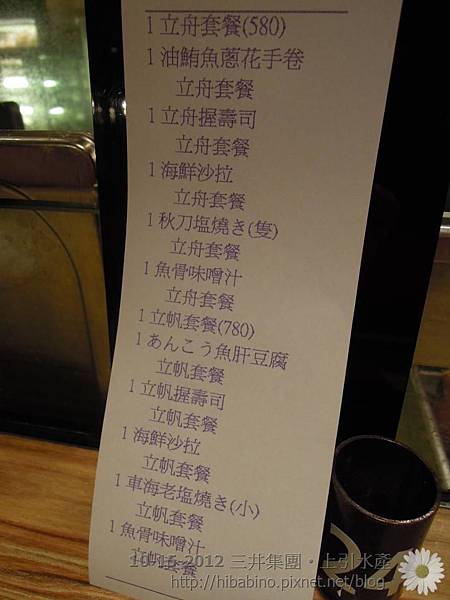 1 立舟套餐(580)
1 油鮪魚蔥花手卷
立舟套餐
1 立舟握壽司
立舟套餐
1 海鮮沙拉
立舟套餐
1 秋刀塩燒き(隻)
立舟套餐
1 魚骨味噌汁
立舟套餐
1 立帆套餐(780)
1 あんこう魚肝豆腐
立帆套餐
1 立帆握壽司
立帆套餐
1 海鮮沙拉
立帆套餐
1 車海老塩燒き(小)
立帆套餐
1 魚骨味噌汁
立帆套餐
2012 三井集團・上引水產
http://hibabino.pixnet.net/blog